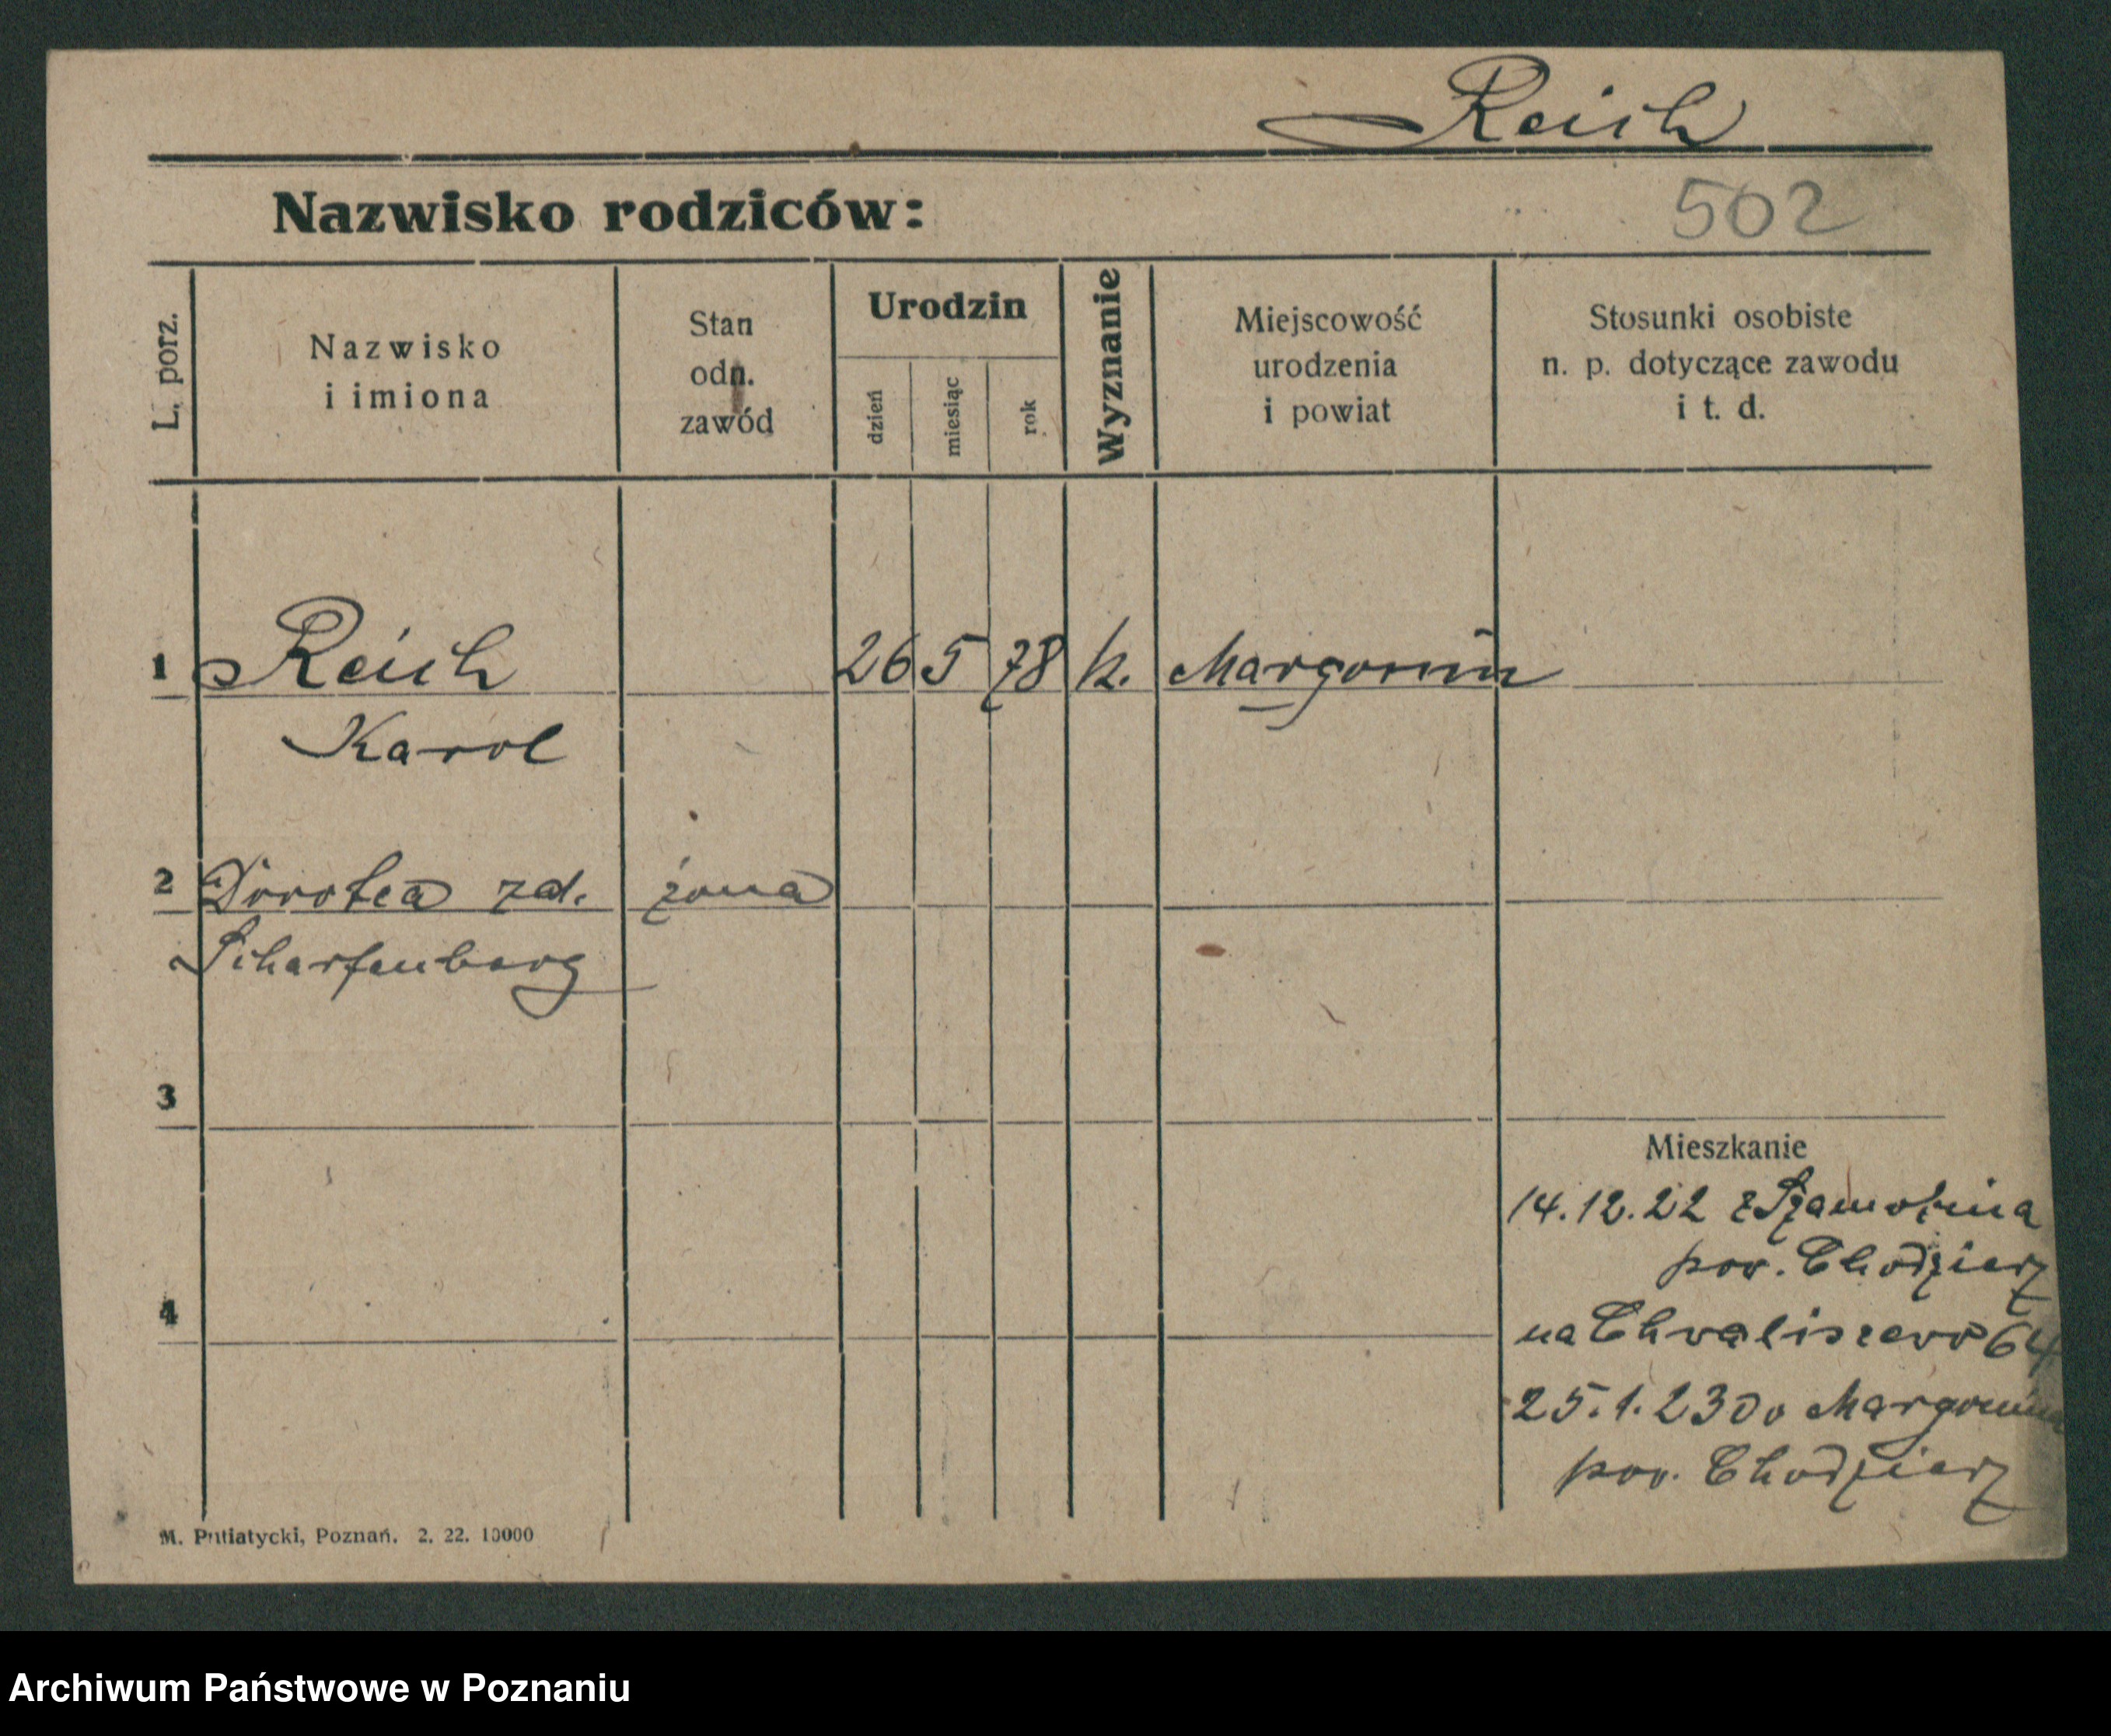 Reich
Nazwisko rodziców:
502
L. porz.
Nazwisko
i imiona
Stan
odn.
zawód
Urodzin
dzień
miesiąc
rok
Wyznanie
Miejscowość
urodzenia
i powiat
Stosunki osobiste
n. p. dotyczące zawodu
i t. d.
1 Reich 26 5 78 k. Margonin
Karol
2 Dorotea zd. żona
Scharfenberg
3
Mieszkanie
14.12.22 z Szamocina
pow. Chodzież
4
na Chwaliszewo 64
25.1.23 do Margonina
pow. Chodzież
M. Putiatycki, Poznań. 2. 22. 10000
Archiwum Państwowe w Poznaniu